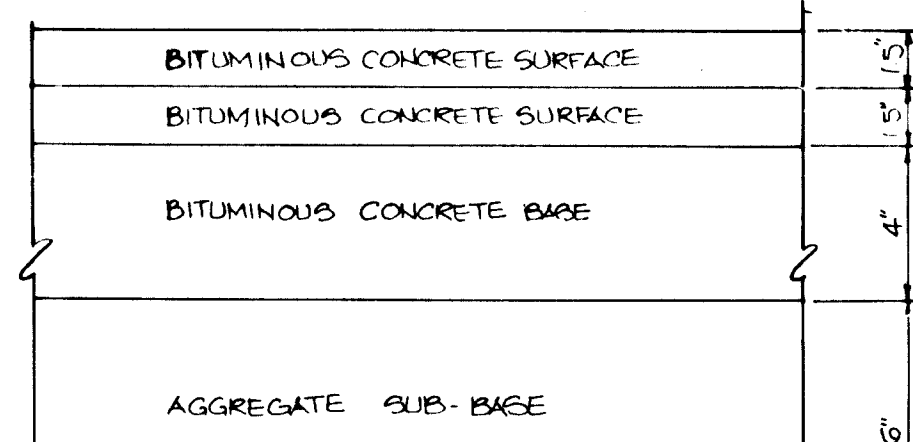 BITUMINOUS CONCRETE SURFACE
1.5"
BITUMINOUS CONCRETE SURFACE
1.5"
BITUMINOUS CONCRETE BASE
4"
AGGREGATE SUB-BASE